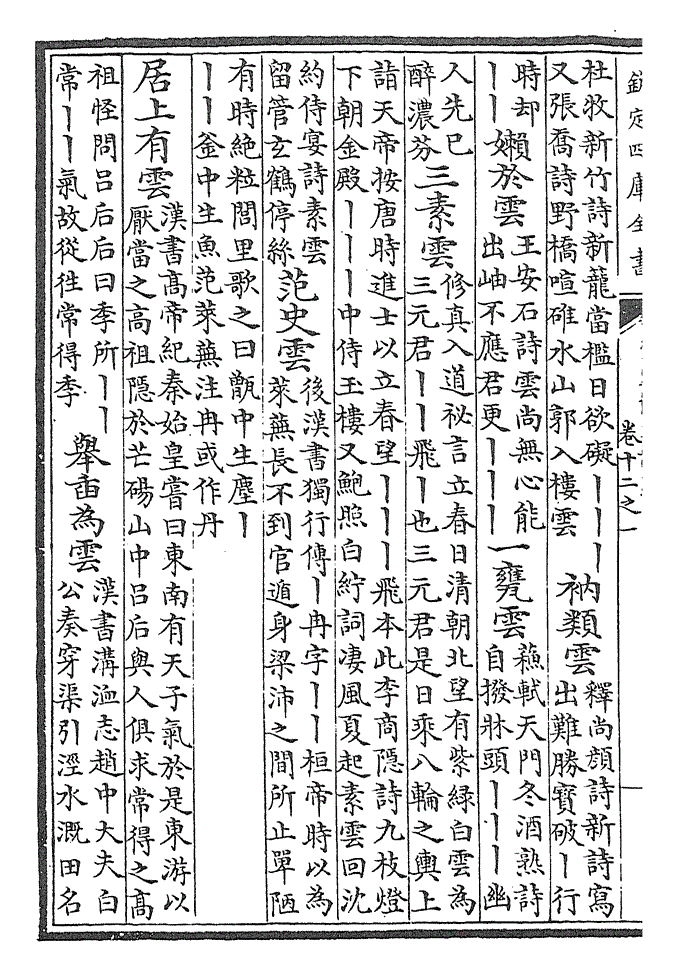 欽定四庫全書
卷十二之一
杜牧新竹詩新籠當檻日欲礙丨丨丨
又張喬詩野橋喧碓水山郭入樓雲
衲類雲
釋尚顔詩新詩寫
出難勝寳破丨行
時却
丨丨
嬾於雲
王安石詩雲尚無心能
出岫不應君更丨丨丨
一甕雲
蘓軾天門冬酒熟詩
自撥牀頭丨丨丨幽
人先已
醉濃芬
三素雲
修真入道祕言立春日清朝北望有紫緑白雲為
三元君丨丨飛丨也三元君是日乘八輪之輿上
詣天帝按唐時進士以立春望丨丨丨飛本此李商隱詩九枝燈
下朝金殿丨丨丨中侍玉樓又鮑照白紵詞凄風夏起素雲回沈
約侍宴詩素雲
留管玄鶴停絲
范史雲
後漢書獨行傳丨冉字丨丨桓帝時以為
萊蕪長不到官遁身梁沛之間所止單陋
有時絶粒閭里歌之曰甑中生塵丨
丨丨釜中生魚范萊蕪注冉或作丹
居上有雲
漢書髙帝紀秦始皇嘗曰東南有天子氣於是東游以
厭當之高祖隱於芒碭山中吕后與人俱求常得之髙
祖怪問吕后后曰季所丨丨
常丨丨氣故從徃常得季
舉臿為雲
漢書溝洫志趙中大夫白
公奏穿渠引涇水溉田名